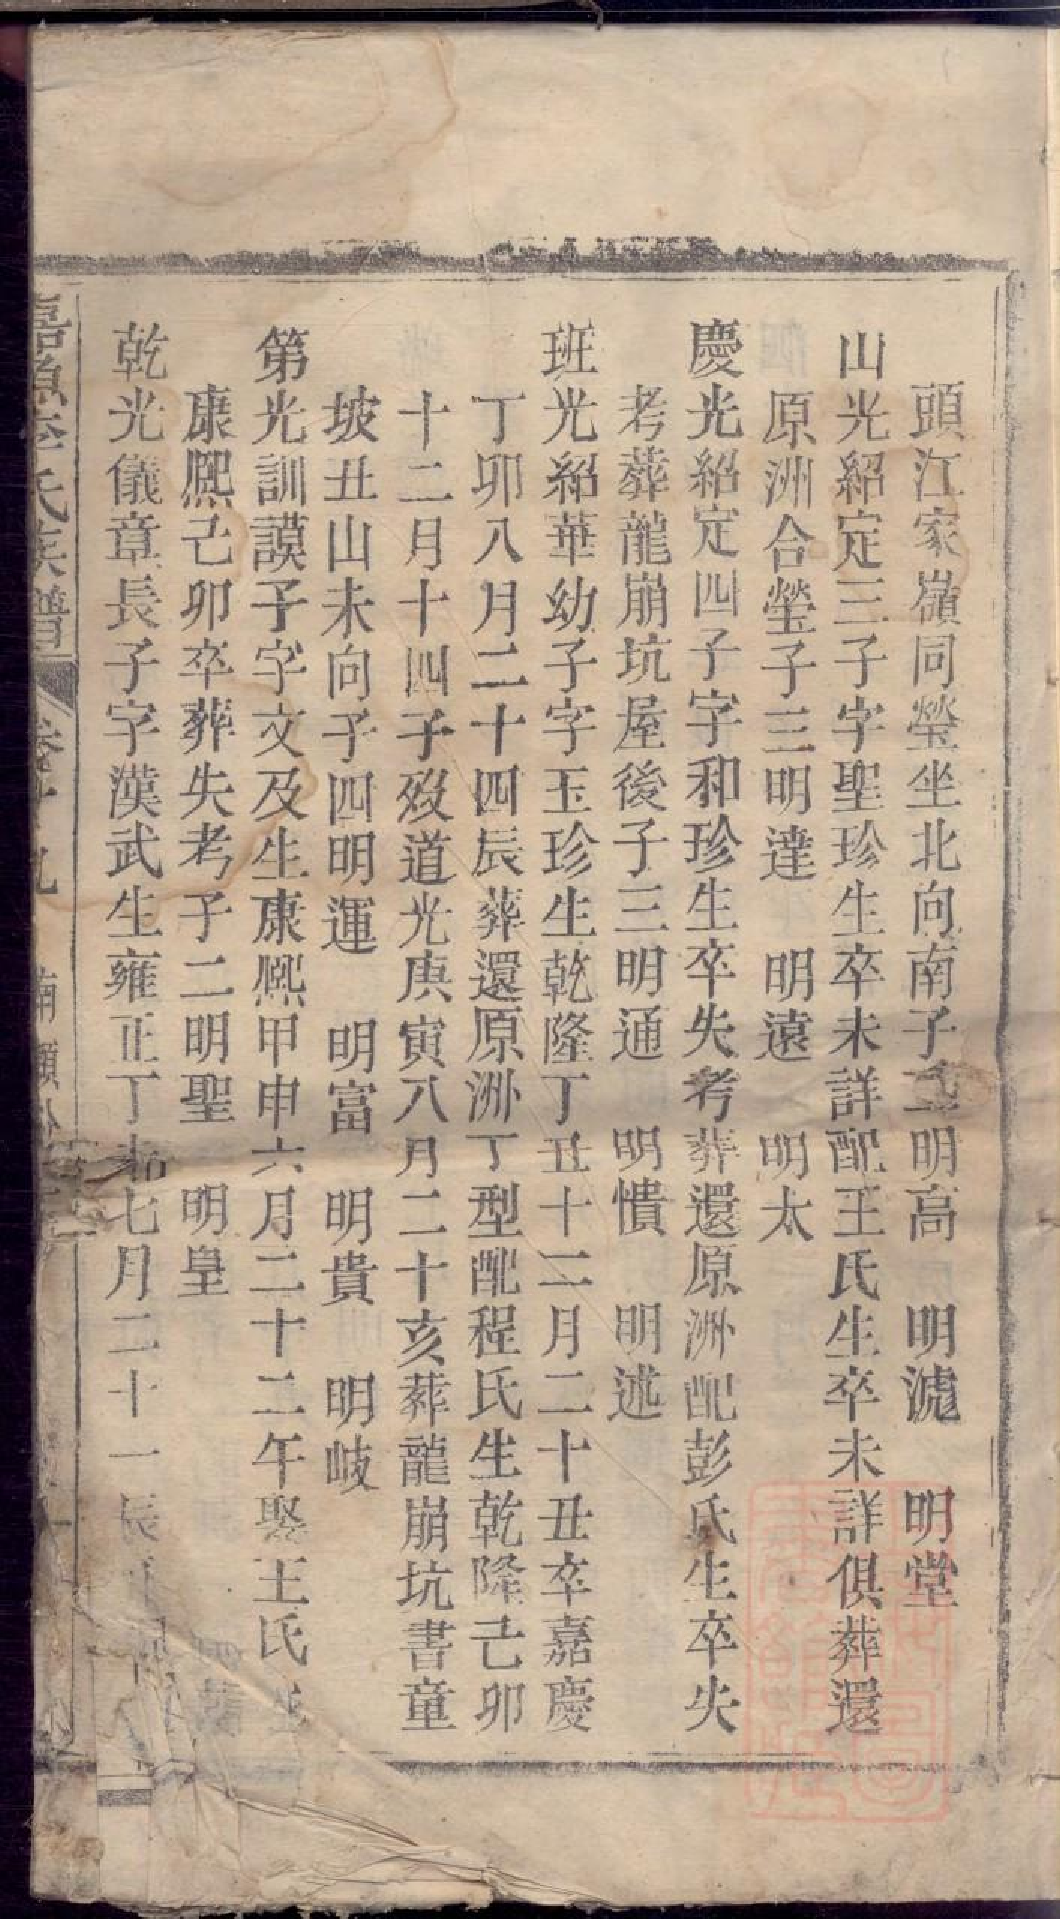 頭江家嶺同瑩坐北向南子五明高　明滮　明堂
山光紹定三子字聖珍生卒未詳配王氏生卒未詳俱葬還
原洲合瑩子三明達　明遠　明太
慶光紹定四子字和珍生卒失考葬還原洲配彭氏生卒失
考葬龍崩坑屋後子三明通　明憒　明述
班光紹華幼子字玉珍生乾隆丁丑十二月二十丑卒嘉慶
丁卯八月二十四辰葬還原洲丁型配程氏生乾隆己卯
十二月十四子歿道光庚寅八月二十亥葬龍崩坑書童
坡丑山未向子四明運　明富　明貴　明岐
第光訓謨子字文及生康熈甲申六月二十二午娶王氏生
康熈己卯卒葬失考子二明聖　明皇
乾光儀章長子字漢武生雍正丁未七月二十一辰
嘉魚李氏族譜